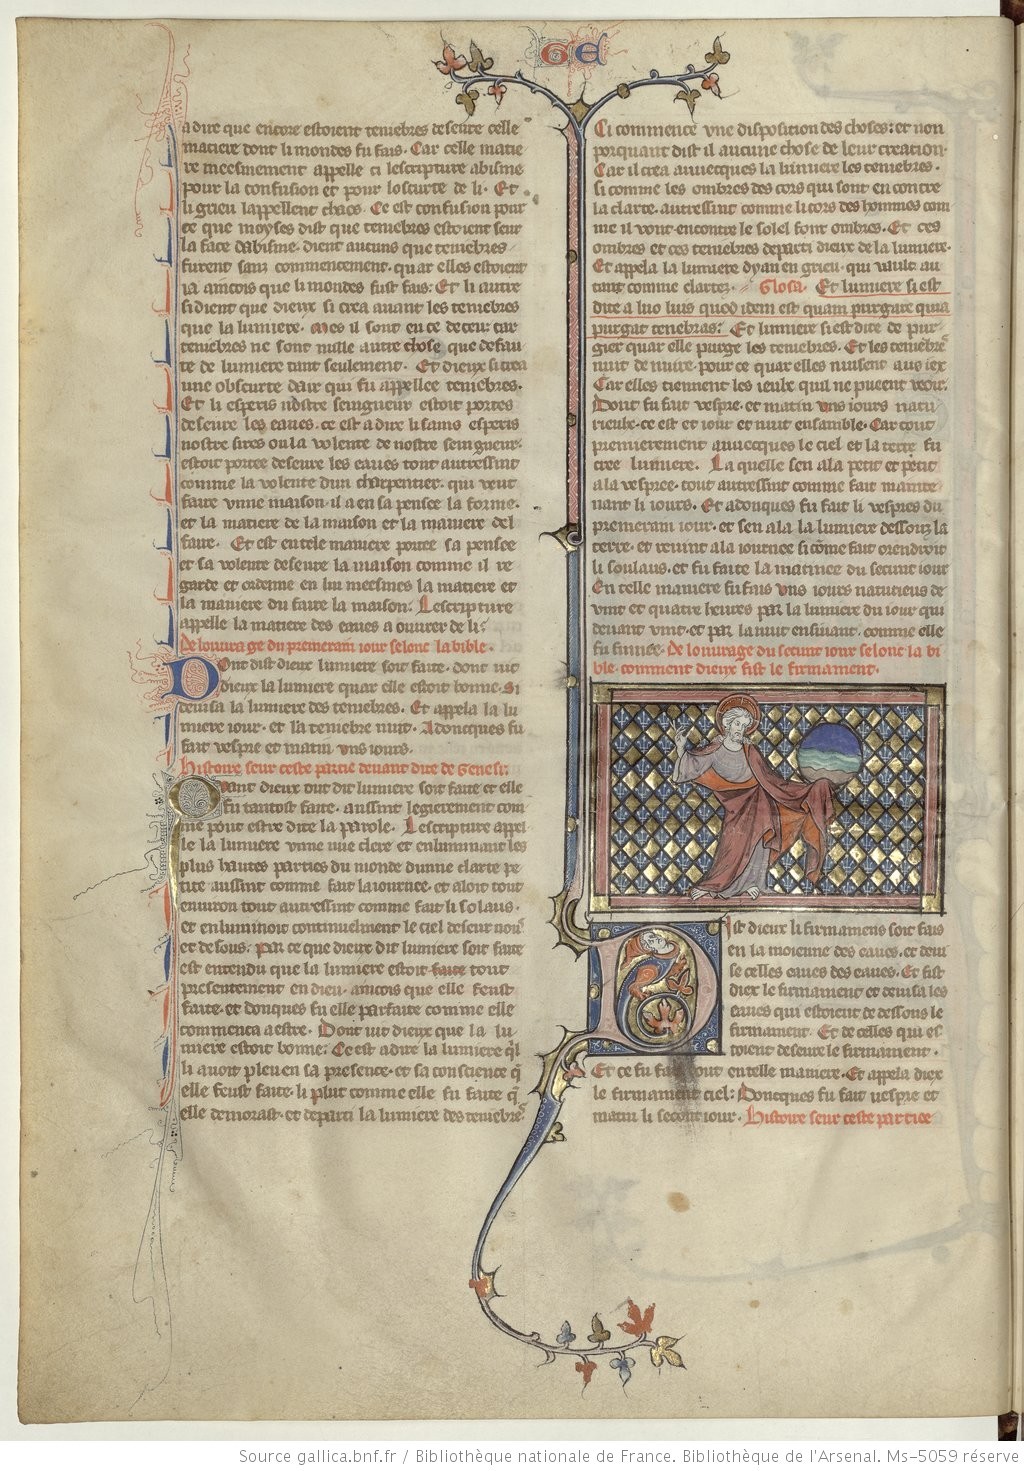 GE
a dire que encore estoient tenebres deseure celle
matiere dont li mondes fu fais. Car celle matie
re meesmement appelle ci lescripture abisme
pour la confusion et pour loscurte de li. Et
li grieu lappellent chaos. Ce est confusion pour
ce que moyses dist que tenebres estoient seur
la face dabisme. dient aucuns que tenebres
furent sanz commencement. quar elles estoient
ia ancois que li mondes fust fais: Et li autre
si dient que dieux si crea auant les tenebres
que la lumiere. mes il sont en ce deceu: car
tenebres ne sont nulle autre chose que defau
te de lumiere tant seulement. Et dieux si crea
une obscurte dair qui fu appellee tenebres.
Et li esperis nostre seingneur estoit portes
deseure les eaues. ce est a dire li sains esperis
nostre sires ou la volente de nostre seingneur:
estoit portee deseure les eaues tout autressint
comme la volente dun charpentier. qui veut
faire vnne maison. il a en sa pensee la forme.
et la matiere de la maison et la maniere del
faire. Et est en tele maniere portee sa pensee
et sa volente deseure la maison comme il re
garde et ordenne en lui meesmes la matiere et
la maniere du faire la maison: Lescripture
appelle la matiere des eaues a ouurer de li:
De louura ge du premerain iour selonc la bible.
Dont dist dieux lumiere soit faite. dont uit
dieux la lumiere quar elle estoit bonne. Si
deuisa la lumiere des tenebres. Et appela la lu
miere iour. et la tenebre nuit. Adoncques fu
fait vespre et matin vns iours.
Histoire seur ceste partie deuant dite de Genesi:
Quant dieux out dit lumiere soit faite et elle
fu tantost faite. aussint legierement com
me pout estre dite la parole. Lescripture appel
le la lumiere vnne nue clere et enluminant les
plus hautes parties du monde dunne clarte pe
tite aussint comme fait la iournee. et aloit tout
enuiron tout autressint comme fait li solaus.
et enluminoit continuelment le ciel deseur nous
et desous: par ce que dieux dit lumiere soit faite
est entendu que la lumiere estoit faite tout
presentement en dieu. ancois que elle feust
faite. et donques fu elle parfaite comme elle
commenca a estre. Dont uit dieux que la lu
miere estoit bonne: Ce est a dire la lumiere q̃l
li auoit pleu en sa presence. et sa conscience q̃
elle feust faite. li plut comme elle fu faite q̃
elle demorast. et departi la lumiere des tenebres:
Ci commence vne disposition des choses: et non
porquant dist il aucune chose de leur creation.
Car il crea auuecques la lumiere les tenebres.
si comme les ombres des cors qui sont en contre
la clarte. autressint comme li cors des hommes com
me il vont encontre le solel font ombres. Et ces
ombres et ces tenebres departi dieux de la lumiere.
Et appela la lumiere dyan en grieu. qui vault au
tant comme clartez. Glosa. Et lumiere si est
dite a luo luis quod idem est quam purgare quia
purgat tenebras: Et lumiere si est dite de pur
gier quar elle purge les tenebres. Et les tenebres
nuit de nuire. pour ce quar elles nuisent aus iex
Car elles tiennent les ieulx quil ne pueent veoir.
Dont fu fait vespre. et matin vns iours natu
rieulx. ce est et iour et nuit ensamble. Car tout
premierement auuecques le ciel et la terre fu
cree lumiere. La quelle sen ala petit et petit
a la vespree. tout autressint comme fait mainte
nant li iours. Et adonques fu fait li vespres du
premerain iour. et sen ala la lumiere dessouz la
terre. et reuint a la iournee si cõme fait orendroit
li soulaus. et fu faite la matinee du secunt iour
En telle maniere fu fais vns iours natutieus de
vint et quatre heures par la lumiere du iour qui
deuant vint. et par la nuit ensiuant. comme elle
fu finnee. De louurage du secunt iour selonc la bi
ble. comment dieux fist le firmament.
Dist dieux li firmamens soit fais
en la moienne des eaues. et deui
se celles eaues des eaues. Et fist
diex le firmament et deuisa les
eaues qui estoient de dessous le
firmament. Et de celles qui es
toient deseure le firmament.
Et ce fu fait tout en telle maniere. Et appela diex
le firmament ciel: Doncques fu fait vespre et
matin li secont iour. Histoire seur ceste partiee
Source gallica.bnf.fr / Bibliothèque nationale de France. Bibliothèque de l'Arsenal. Ms-5059 réserve